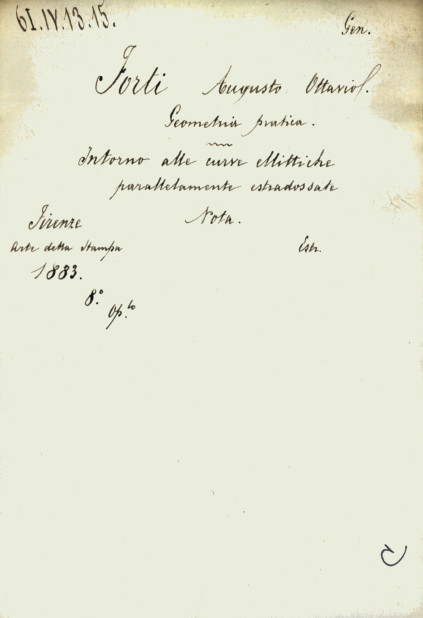 61.IV.13.15.
Gen.
Forti Augusto Ottavio
Geometria pratica.
Intorno alle curve ellittiche
parallelamente estradossate
Nota.
Firenze
Arte della Stampa
Estr.
1883.
8.°
Op.lo